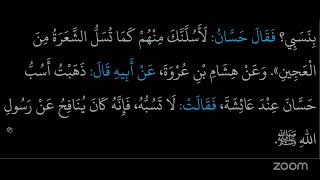 بِنَسَبِي؟ فَقَالَ حَسَّانُ: لَأَسُلَّنَّكَ مِنْهُمْ كَمَا تُسَلُّ الشَّعَرَةُ مِنَ
الْعَجِينِ». وَعَنْ هِشَامِ بْنِ عُرْوَةَ، عَنْ أَبِيهِ قَالَ: ذَهَبْتُ أَسُبُّ
حَسَّانَ عِنْدَ عَائِشَةَ، فَقَالَتْ: لَا تَسُبُّهُ، فَإِنَّهُ كَانَ يُنَافِحُ عَنْ رَسُولِ
اللهِ ﷺ.
zoom